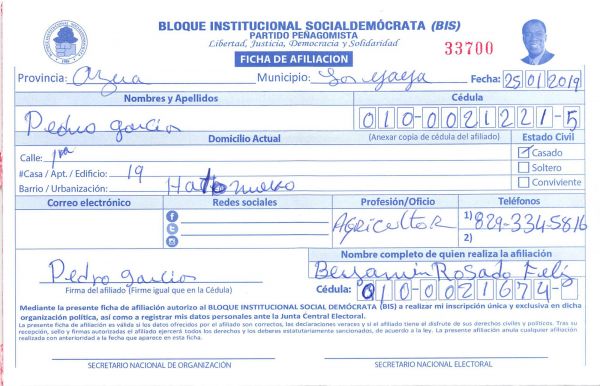 BLOQUE INSTITUCIONAL SOCIALDEMÓCRATA (BIS)
PARTIDO PEÑAGOMISTA
Libertad, Justicia, Democracia y Solidaridad
FICHA DE AFILIACION
33700
Provincia: Azua Municipio: Los Yayas Fecha: 25/01/2019
Nombres y Apellidos Cédula
Pedro García 010-0021221-5
Domicilio Actual (Anexar copia de cédula del afiliado) Estado Civil
Calle: 1ra Casado
#Casa / Apt. / Edificio: 19 Soltero
Barrio / Urbanización: Hato nuevo Conviviente
Correo electrónico Redes sociales Profesión/Oficio Teléfonos
Agricultor 1) 829-334-5816
2)
Nombre completo de quien realiza la afiliación
Pedro García Benjamin Rosado Feliz
Firma del afiliado (Firme igual que en la Cédula) Cédula: 010-0021674-
Mediante la presente ficha de afiliación autorizo al BLOQUE INSTITUCIONAL SOCIAL DEMÓCRATA (BIS) a realizar mi inscripción única y exclusiva en dicha
organización política, así como a registrar mis datos personales ante la Junta Central Electoral.
La presente ficha de afiliación es válida si los datos ofrecidos por el afiliado son correctos, las declaraciones veraces y si el afiliado tiene el disfrute de sus derechos civiles y políticos. Tras su
recepción, sello y firmas autorizadas el afiliado ejercerá todos los derechos y los deberes estatutariamente sancionados, de acuerdo a la ley. La presente afiliación anula cualquier afiliación
realizada con anterioridad a la fecha que aparece en esta ficha.
SECRETARIO NACIONAL DE ORGANIZACIÓN SECRETARIO NACIONAL ELECTORAL